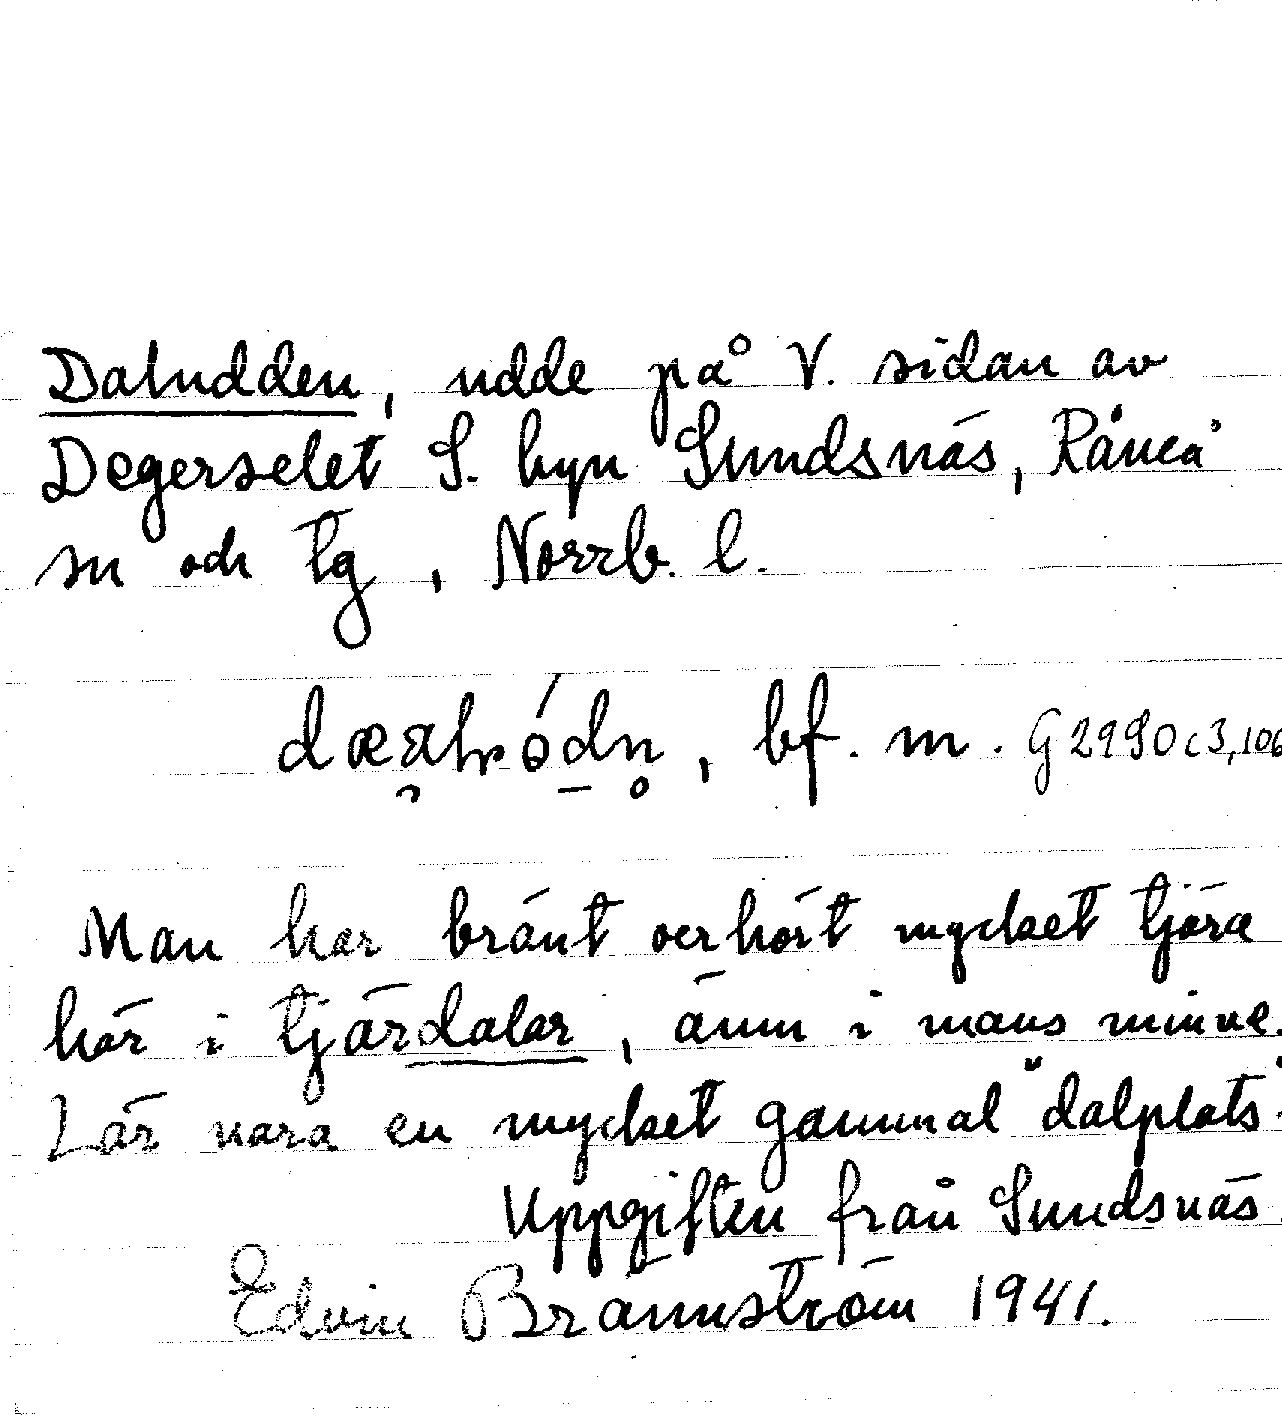 Daludden, udde på V. sidan av
Degerselet S. byn Sundsnäs, Råneå
sn och tg, Norrb. l.
bf. m. G 2990 c3, 106
Man har bränt oerhört mycket tjära
här i tjärdalar, ännu i mans minne.
Lär vara en mycket gammal "dalplats".
Uppgiften från Sundsnäs.
Edvin Brännström 1941.